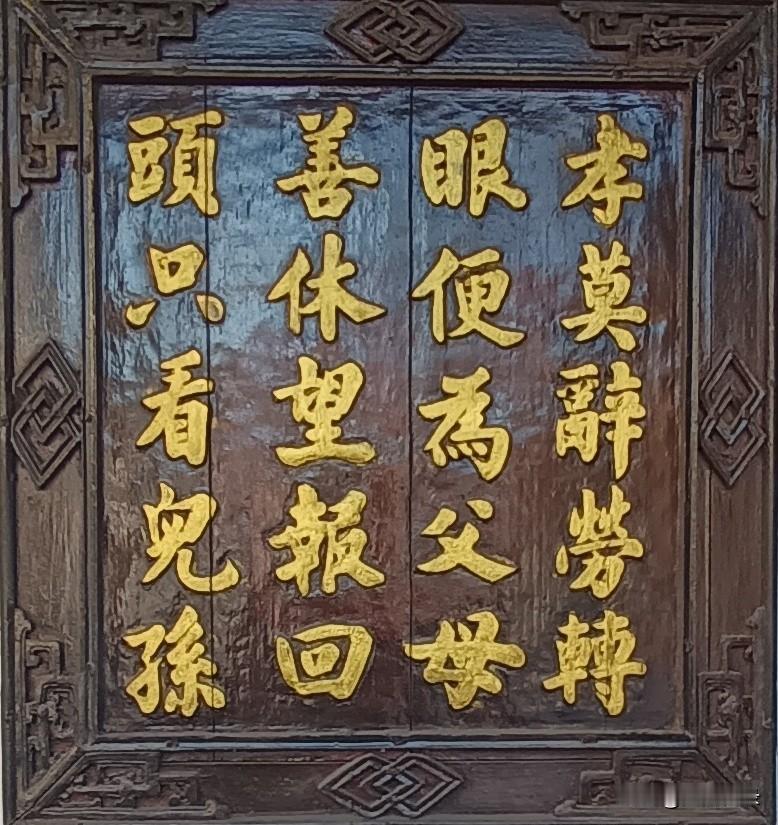 孝莫辭勞轉
眼便為父母
善休望報回
頭只看兒孫